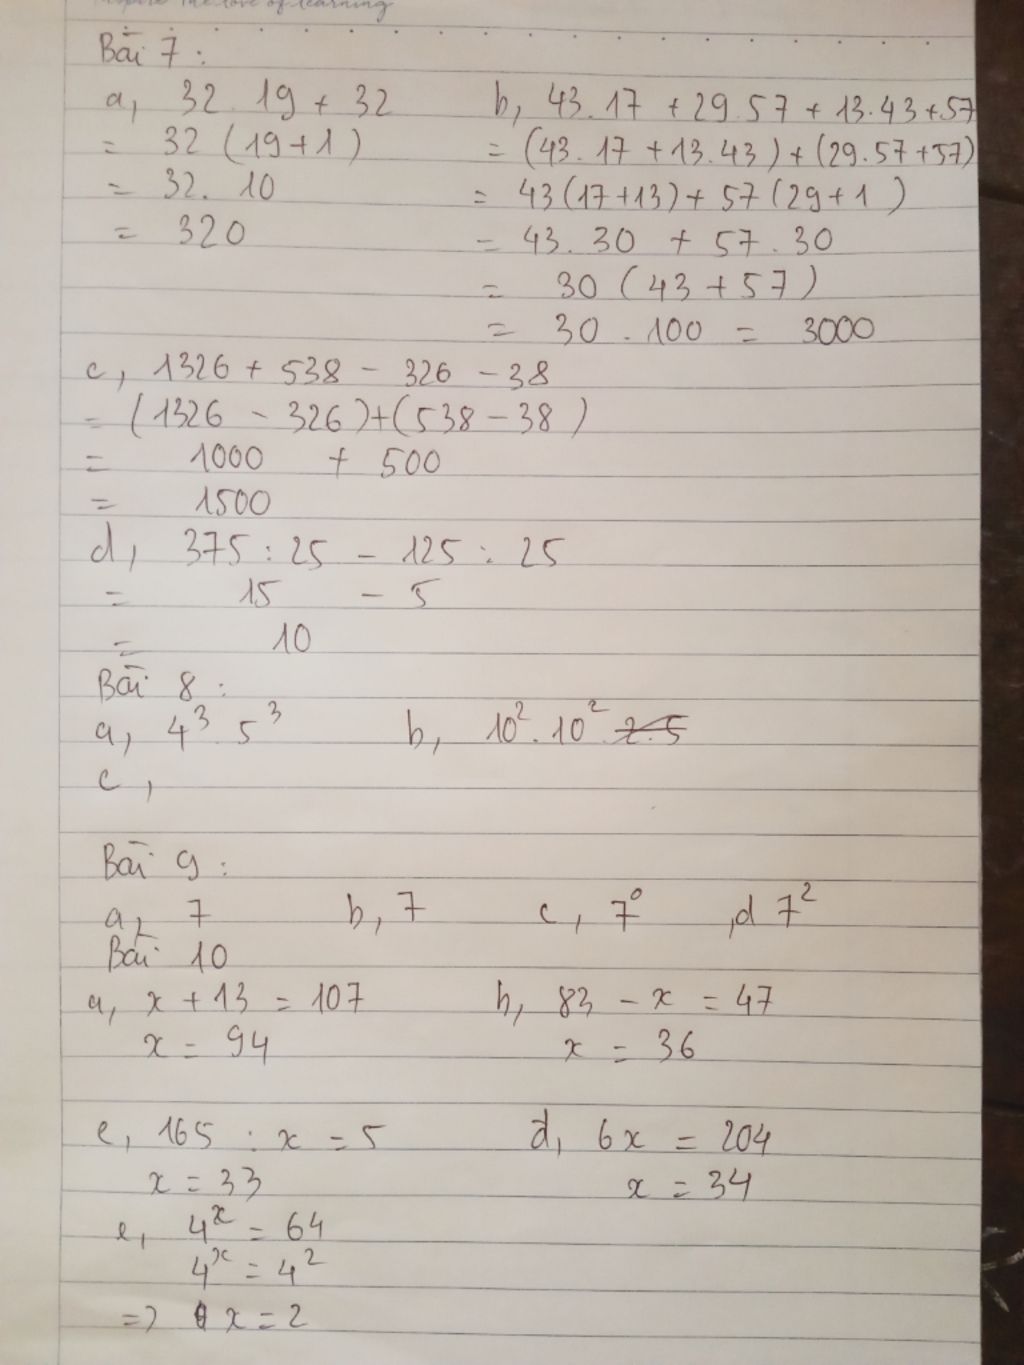 Inspire the love of learning
Bài 7 :
a, 32 . 19 + 32
= 32 (19+1)
= 32. 10
= 320
b, 43.17 + 29.57 + 13.43 + 57
= (43.17 + 13.43) + (29.57 + 57)
= 43(17+13) + 57(29+1)
= 43.30 + 57.30
= 30 (43 + 57)
= 30 . 100 = 3000
c, 1326 + 538 - 326 - 38
= (1326 - 326)+(538 - 38)
= 1000 + 500
= 1500
d, 375 : 25 - 125 : 25
= 15 - 5
= 10
Bài 8 :
a, 4³ . 5³ b, 10² . 10² . 2.5
c,
Bài 9 :
a, 7 b, 7 c, 7⁰ ,d 7²
Bài 10
a, x + 13 = 107
x = 94
b, 83 - x = 47
x = 36
c, 165 : x = 5
x = 33
d, 6x = 204
x = 34
e, 4ˣ = 64
4ˣ = 4²
=> x = 2